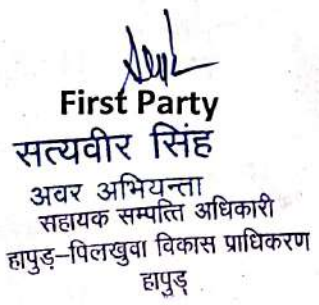 First Party
सत्यवीर सिंह
अवर अभियन्ता
सहायक सम्पत्ति अधिकारी
हापुड़-पिलखुवा विकास प्राधिकरण
हापुड़